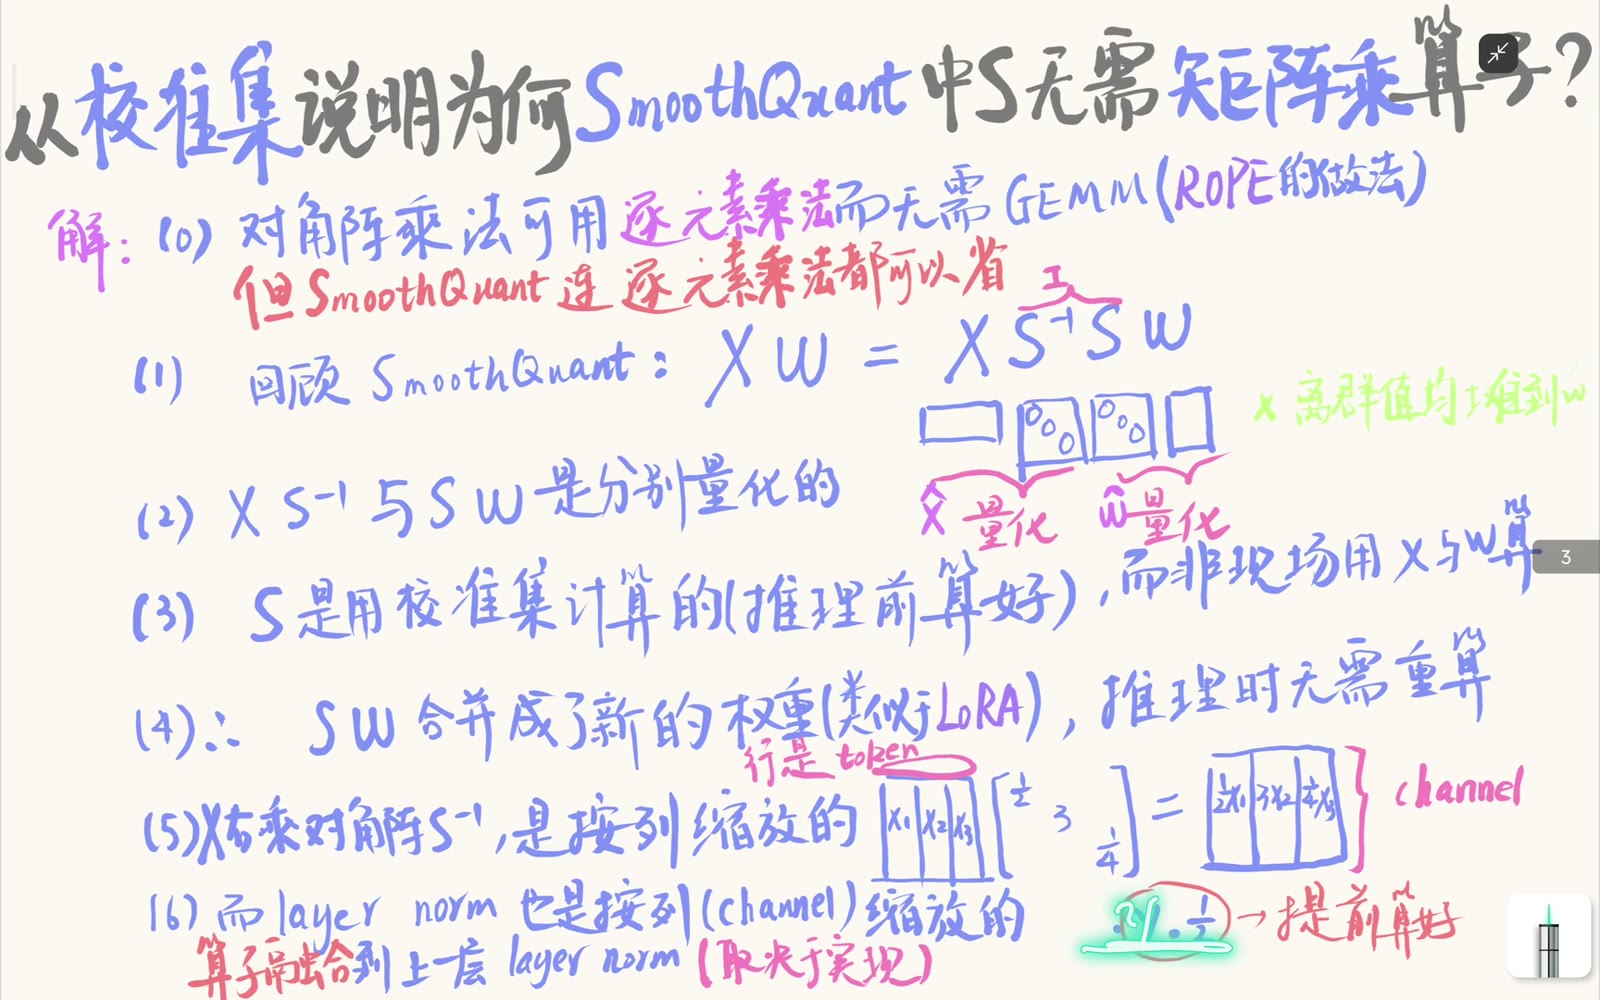 从校准集说明为何SmoothQuant中S无需矩阵乘算子?
解:(0)对角阵乘法可用逐元素乘法而无需GEMM(ROPE的做法)
但SmoothQuant连逐元素乘法都可以省
I
(1) 回顾 SmoothQuant: XW = XS⁻¹SW
X离群值均摊到W
(2) XS⁻¹与SW是分别量化的
X̂ 量化 Ŵ 量化
(3) S是用校准集计算的(推理前算好),而非现场用X与W算
3
(4)∴ SW合并成了新的权重(类似于LoRA),推理时无需重算
行是token
(5)X右乘对角阵S⁻¹,是按列缩放的 [x₁ x₂ x₃] [½ 3 ¼] = [½x₁ 3x₂ ¼x₃] channel
(6)而layer norm也是按列(channel)缩放的
→提前算好
算子融合到上一层layer norm(取决于实现)